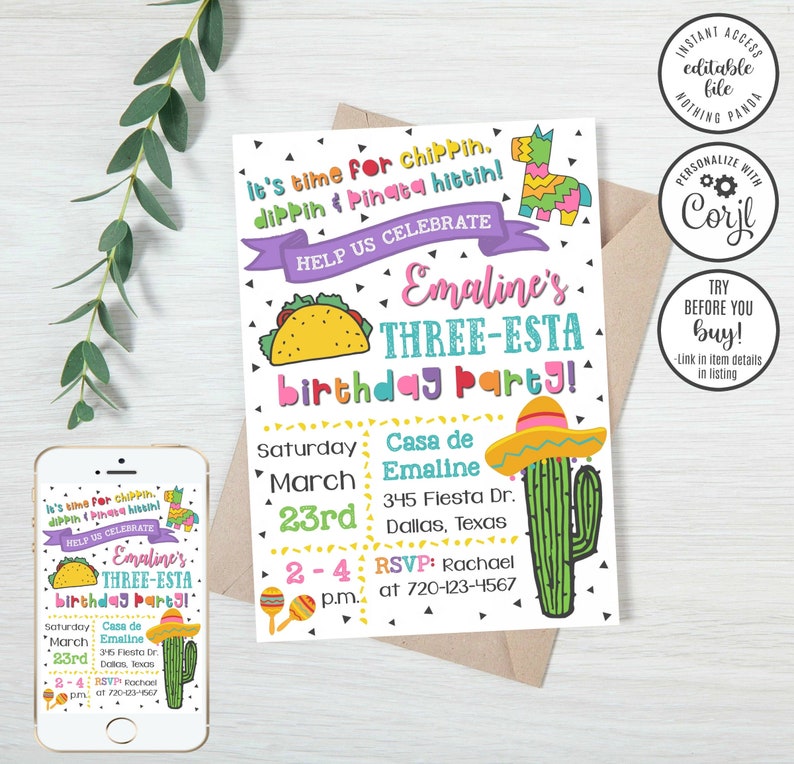 it's time for chippin,
dippin & pinata hittin!
HELP US CELEBRATE
Emaline's
THREE-ESTA
birthday party!
Saturday
March
23rd
Casa de
Emaline
345 Fiesta Dr.
Dallas, Texas
2 - 4
p.m.
RSVP: Rachael
at 720-123-4567
it's time for chippin,
dippin & pinata hittin!
HELP US CELEBRATE
Emaline's
THREE-ESTA
birthday party!
Saturday
March
23rd
Casa de
Emaline
345 Fiesta Dr.
Dallas, Texas
2 - 4
p.m.
RSVP: Rachael
at 720-123-4567
INSTANT ACCESS
editable
file
NOTHING PANDA
PERSONALIZE WITH
Corjl
TRY
BEFORE YOU
buy!
-Link in item details
in listing